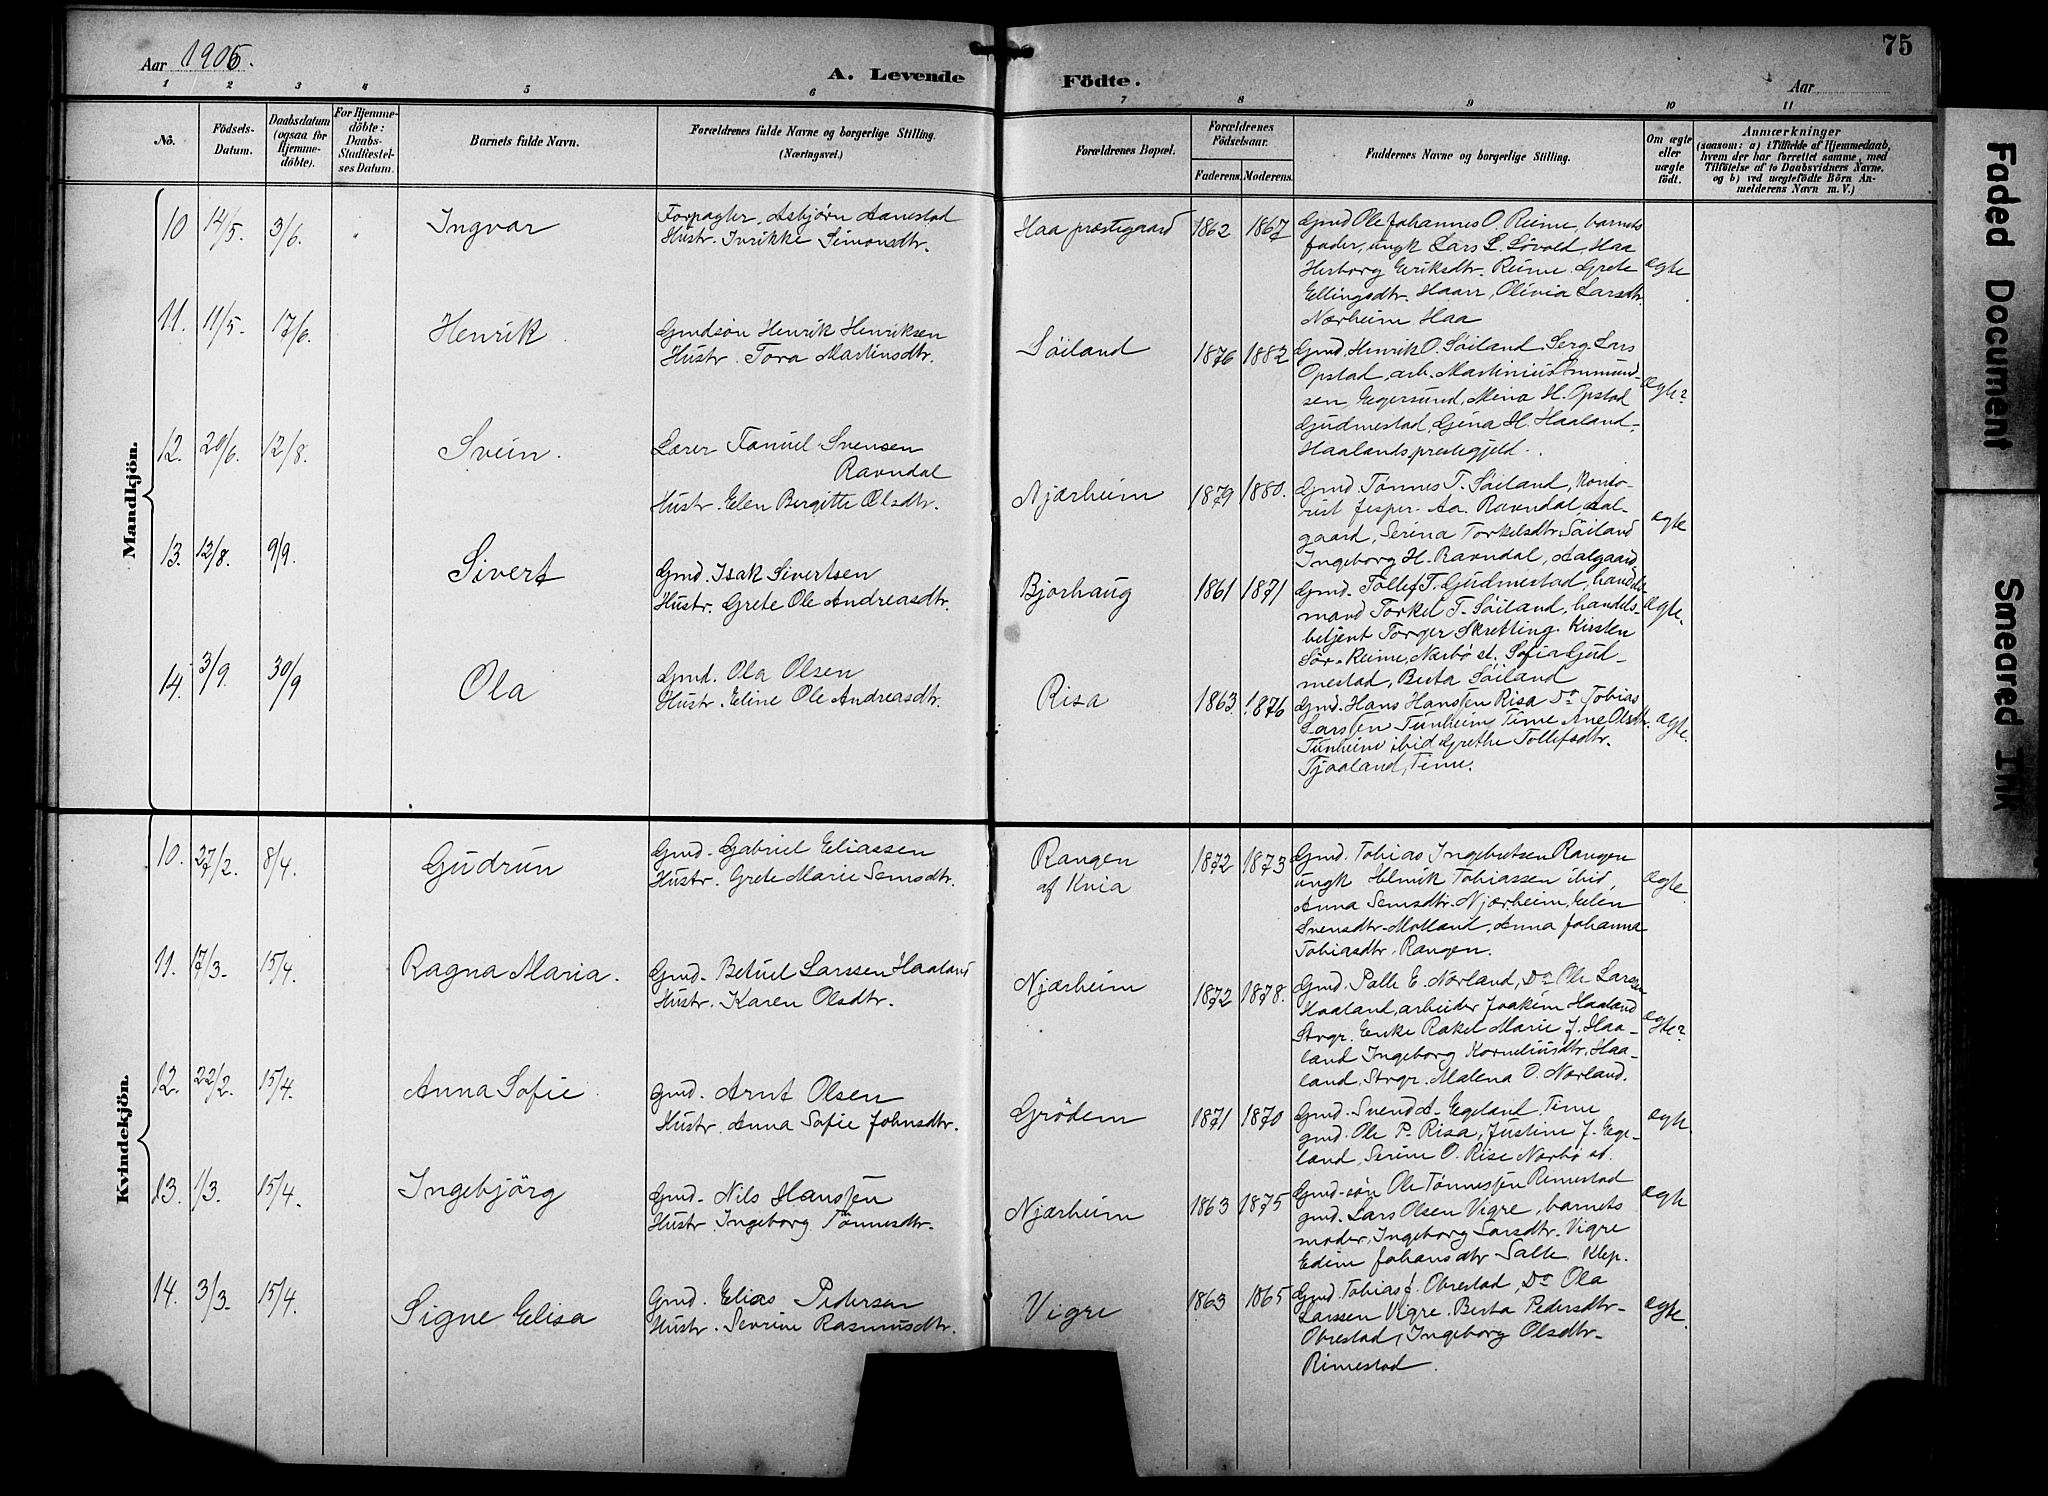 Aar 1906.
A. Levende Födte.
Aar
75
1 2 3 4 5 6 7 8 9 10 11
No.
Födsels-Datum.
Daabsdatum (ogsaa for Hjemme-döbte).
For Hjemme-döbte: Daabs-Stadfæstel-ses Datum.
Barnets fulde Navn.
Forældrenes fulde Navne og borgerlige Stilling. (Næringsvei.)
Forældrenes Bopæl.
Forældrenes Födselsaar.
Faderens. Moderens.
Faddernes Navne og borgerlige Stilling.
Om ægte eller uægte födt.
Anmærkninger
(saasom: a) i Tilfælde af Hjemmedaab,
hvem der har forrettet samme, med
Tilföielse af to Daabsvidners Navne.
og b) ved uægtefödte Börn An-
melderens Navn m. V.)
Mandkjön.
10 14/5. 3/6. Ingvar
Forpagter, Asbjørn Aanestad
Hustr. Inrikke Simonsdtr.
Haa præstegaard 1862 1867
Gmd Ole Johannes O. Reime, barnets
fader, ungk Lars L. Løvold, Haa
Herborg Eeriksdtr. Reime. Grete
Ellingsdtr. Haarr, Olivia Larsdtr.
Nærheim Haa
ægte
11. 11/5. 17/6. Henrik
Gmdsøn Henrik Henriksen
Hustr. Tora Martinsdtr.
Söiland 1876 1882
Gmd. Henrik O. Söiland. Serg. Lars
Opstad, arb. Martinius Ommund-
sen, Egersund, Mina H. Opstad
Gudmestad, Gina H. Haaland,
Haalands prestegjeld.
ægte
12. 20/6. 12/8. Svein.
Lærer Tanuel Svensen
Ravndal
Hustr. Elen Bergitte Olsdtr.
Njærheim 1879 1880.
Gmd. Tönnes T. Söiland, Konto-
rist Jesper Aa. Ravndal, Aal-
gaard, Serina Torkelsdtr. Söiland
Ingeborg H. Ravndal, Aalgaard
ægte
13. 12/8. 9/9. Sivert
Gmd. Isak Sivertsen
Hustr. Grete Ole Andreasdtr.
Bjorhaug 1861 1871
Gmd. Tollef T. Gudmestad, handels-
mand Torkel T. Söiland, handels-
betjent Torger Skretting. Kirsten
Sör-Reime, Nærbö st. Sofia Gud-
mestad, Berta Söiland
ægte.
14. 3/9. 30/9 Ola
Gmd. Ola Olsen
Hustr. Eline Ole Andreasdtr.
Risa 1863 1876
Gmd. Hans Hanssen Risa Do Tobias
Larssen Tunheim, Time Ane Olsdtr.
Tunheim ibid Grethe Tollefsdtr.
Tjaaland, Time.
ægte.
Kvindekjön.
10. 27/2. 8/4. Gudrun
Gmd. Gabriel Eliassen
Hustr. Grete Marie Semsdtr.
Rangen
af Kvia
1872 1873
Gmd. Tobias Ingebretsen Rangen
ungk Helmik Tobiassen ibid,
Anna Semsdtr. Njærheim, Elen
Svensdtr. Motland, Anna Johanna
Tobiasdtr. Rangen.
ægte.
11. 17/3. 15/4. Ragna Maria.
Gmd. Betuel Larssen Haaland
Hustr. Karen Olsdtr.
Njærheim 1872 1878.
Gmd. Palle E. Norland, Do Ole Larssen
Haaland, arbeider Joakim Haaland
Strgr. Enke Rakel Marie J. Haa-
land Ingeborg Korneliusdtr. Haa-
land, Strgr. Malena O. Norland.
ægte
12. 22/2. 15/4. Anna Sofie
gmd. Arnt Olsen
Hustr. Anna Sofie Johnsdtr.
Grödem 1871 1870
Gmd. Svend A. Egeland. Time
gmd. Ole P. Risa, Justine J. Ege-
land, Serine O. Rise Nærbö st.
ægte.
13. 1/3. 15/4. Ingebjörg
Gmd. Nils Hanssen
Hustr Ingeborg Tönnesdtr.
Njærheim 1863 1875
Gmd-sön Ole Tönnessen Rimestad
gmd. Lars Olsen Vigre, barnets
moder, Ingeborg Larsdtr. Vigre
Edim Johansdtr Salte, Klep.
ægte
14. 3/3. 15/4. Signe Elisa
Gmd. Elias Pedersen
Hustr. Sevrine Rasmusdtr.
Vigre 1863 1865
Gmd. Tobias J. Obrestad, Do Ola
Larssen Vigre. Berta Pedersdtr.
Obrestad, Ingeborg Olsdtr.
Rimestad.
ægte.
Faded Document
Smeared Ink